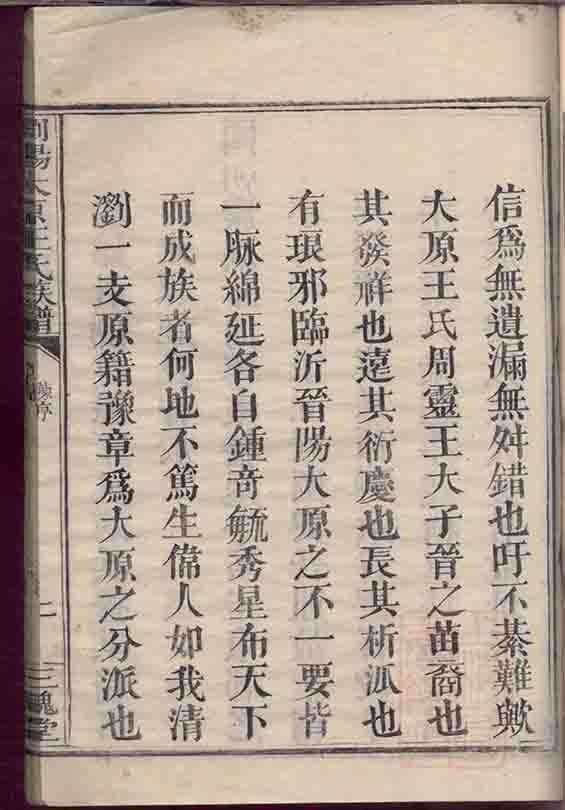 信爲無遺漏無舛錯也吁不綦難歟
大原王氏周靈王大子晉之苗裔也
其發祥也遠其衍慶也長其析派也
有琅邪臨沂晉陽大原之不一要皆
一脈綿延各自鍾奇毓秀星布天下
而成族者何地不篤生偉人如我清
瀏一支原籍豫章爲大原之分派也
瀏陽大原王氏族譜
序
二
三槐堂